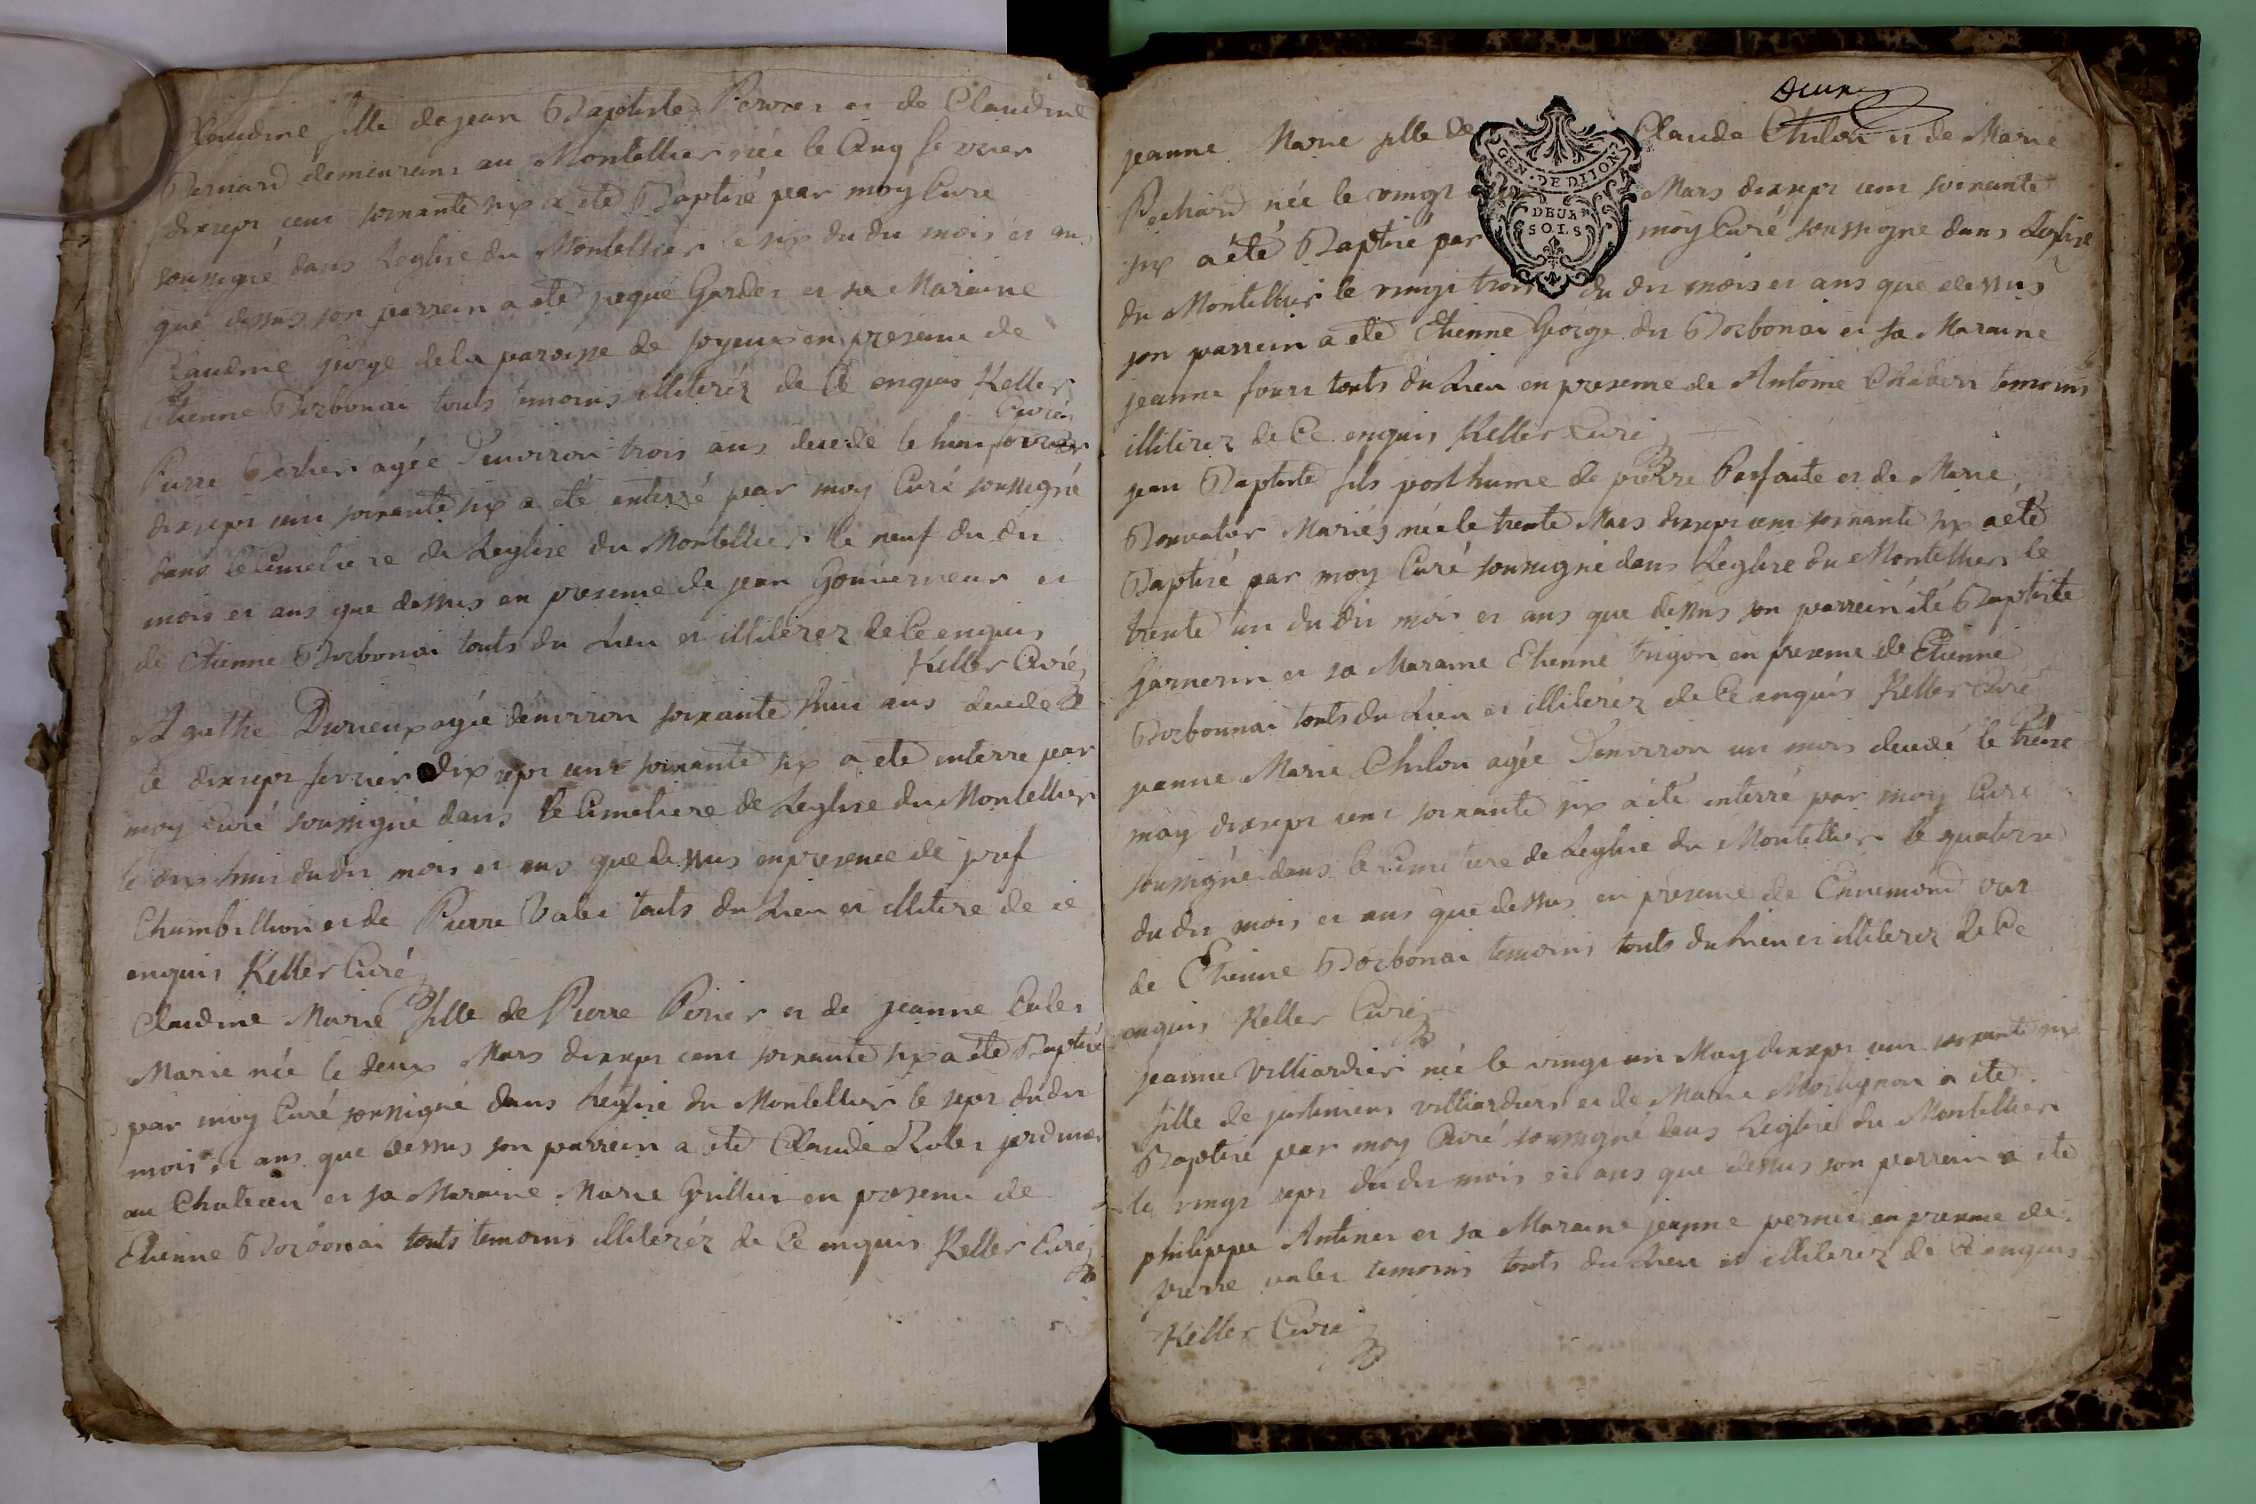 Claudine fille de jean Baptiste Perrier et de Claudine
Bernard demeurans au Montellier née le Cinq fevrier
dixsept cent soixante six a eté Baptisé par moy Curé
soussigné dans Leglise du Montellier le six du du mois et ans
que dessus son parrein a eté jaque Gardet et sa Maraine
Claudine george de la paroisse de joyeux en presence de
Etienne Borbonai touts temoins illiteréz de Ce enquis Keller
Curé
Pierre agée D'environ trois ans decedé le huit fevrier
dixsept cent soixante six a eté enterré par moy Curé soussigné
dans le Cimetiere de Leglise du Montellier le neuf du dit
mois et ans que dessus en presence de jean Gouverneur et
de Etienne Borbonai touts du Lieu et illiterez de Ce enquis
Keller Curé
Agathe Durieux agée denviron soixante huit ans decedé
le dixsept fevrier dix sept cent soixante six a eté enterre par
moy Curé soussigné dans le Cimetiere de Leglise du Montellier
le dix huit du dit mois et ans que dessus en presence de josef
Chambillion et de Pierre Valet touts du Lieu et illitere de ce
enquis Keller Curé
Claudine Marie fille de Pierre Perier et de jeanne
Marie née le deux Mars dixsept cent soixante six a été Baptisé
par moy Curé soussigné dans Leglise du Montellier le sept du dit
mois et ans que dessus son parrein a eté Claude jardinier
au Chateau et sa Maraine Marie Grillet en presence de
Etienne Borbonai touts temoins illiteréz de Ce enquis Keller Curé
jeanne Marie fille de Claude Chilon et de Marie
Pechard née le vingt Mars dixsept cent soixante
six a été Baptisé par moy Curé soussigné dans Leglise
GEN. DE DIJON
DEUX
SOLS
du Montellier le vingt trois du dit mois et ans que dessus
son parrein a eté Etienne George dit Borbonai et sa Maraine
jeanne touts du Lieu en presence de Antoine temoins
illiterez de Ce enquis Keller Curé
jean Baptiste fils posthume de pierre Parfaite et de Marie
Mariés née le trente Mars dixsept cent soixante six a été
Baptisé par moy Curé soussigné dans Leglise du Montellier le
trente un du dit mois et ans que dessus son parrein été Baptiste
Garnerin et sa Maraine Etienne trigon en presence de Etienne
Borbonnai touts du Lieu et illiteréz de Ce enquis Keller Curé
jeanne Marie Chilon agée D'environ un mois decedé le treize
may dixsept cent soixante six a été enterré par moy Curé
soussigné dans le Cimetiere de Leglise du Montellier le quatorze
du dit mois et ans que dessus en presence de
de Etienne Borbonai temoins touts du Lieu et illiterez de Ce
enquis Keller Curé
jeanne Villiardier née le vingt un May dixsept cent soixante six
fille de villiardier et de Marie a eté
Baptisé par moy Curé soussigné dans Leglise du Montellier
le vingt sept du dit mois et ans que dessus son parrein a eté
philippe et sa Maraine jeanne en presence de
pierre valet temoins touts du Lieu et illiterez de Ce enquis
Keller Curé